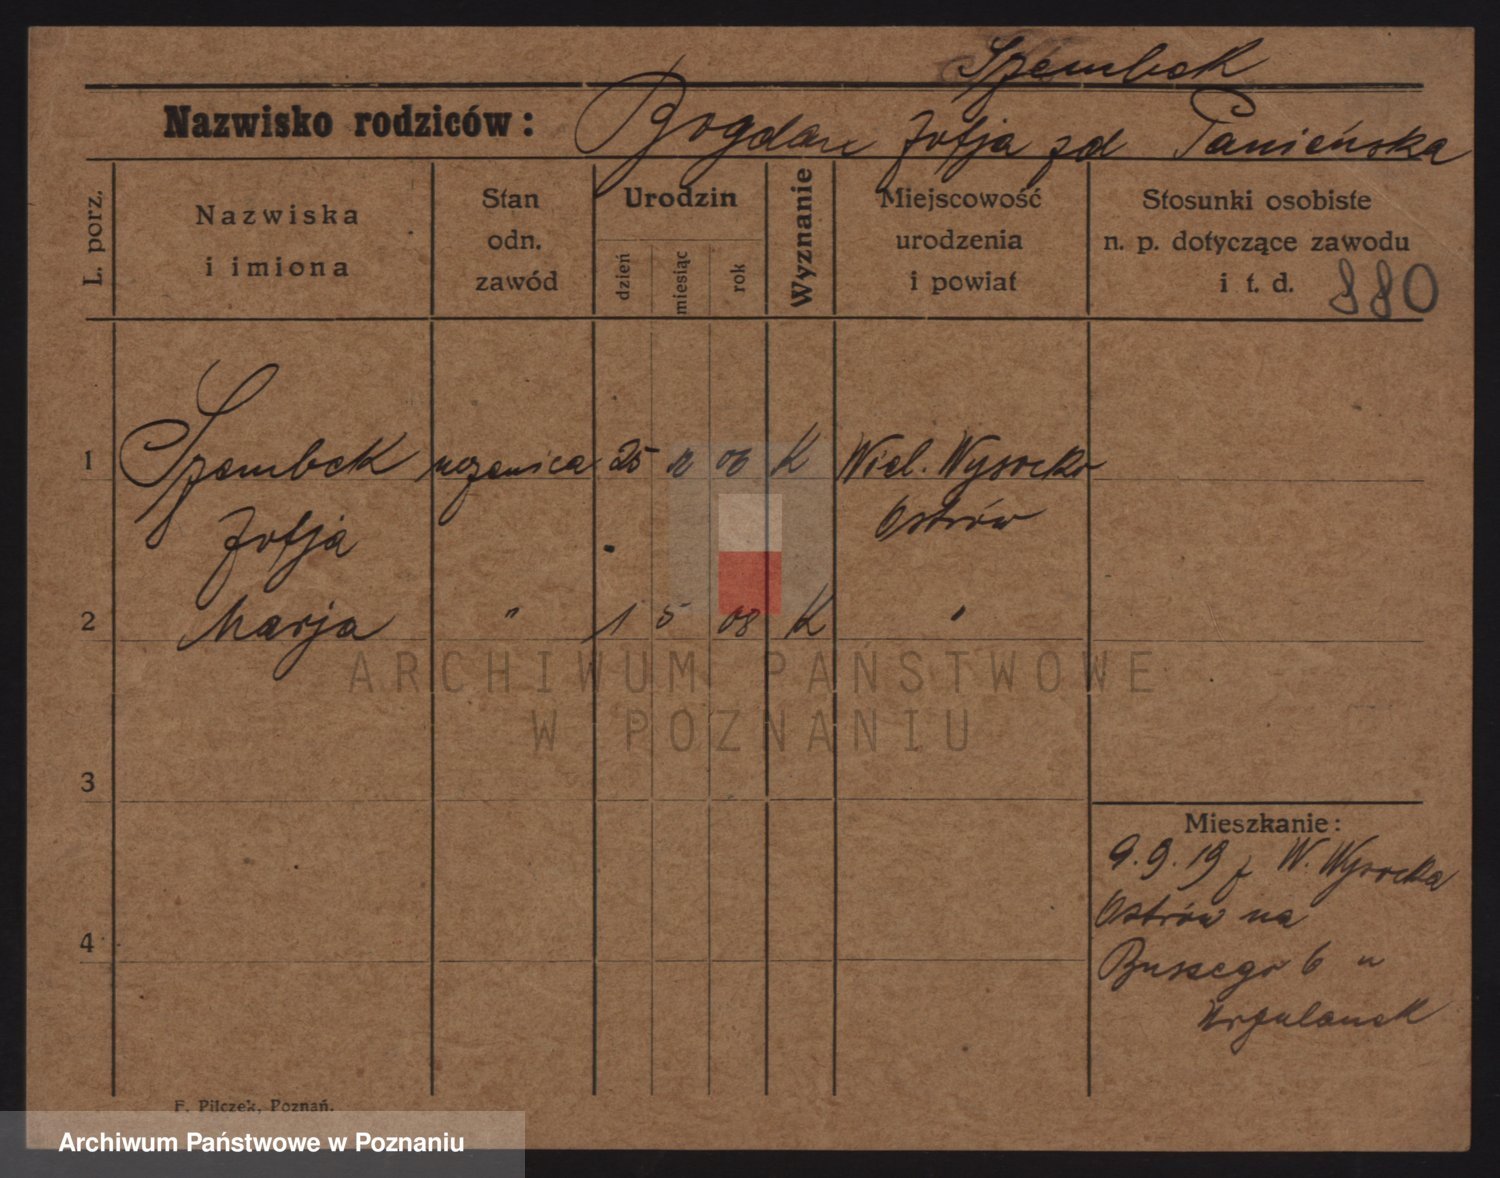 Szembek
Nazwisko rodziców: Bogdan Zofja zd Panieńska
L. porz.
Nazwiska
i imiona
Stan
odn.
zawód
Urodzin
dzień
miesiąc
rok
Wyznanie
Miejscowość
urodzenia
i powiat
Stosunki osobiste
n. p. dotyczące zawodu
i t. d. 880
1 Szembek uczenica 25 12 06 K Wiel. Wysocko
Zofja Ostrów
2 Marja " 1 5 08 K "
ARCHIWUM PAŃSTWOWE
W POZNANIU
3
Mieszkanie:
9.9.19 z W. Wysocka
Ostrów na
4
6 u
Urszulanek
F. Pilczek, Poznań.
Archiwum Państwowe w Poznaniu